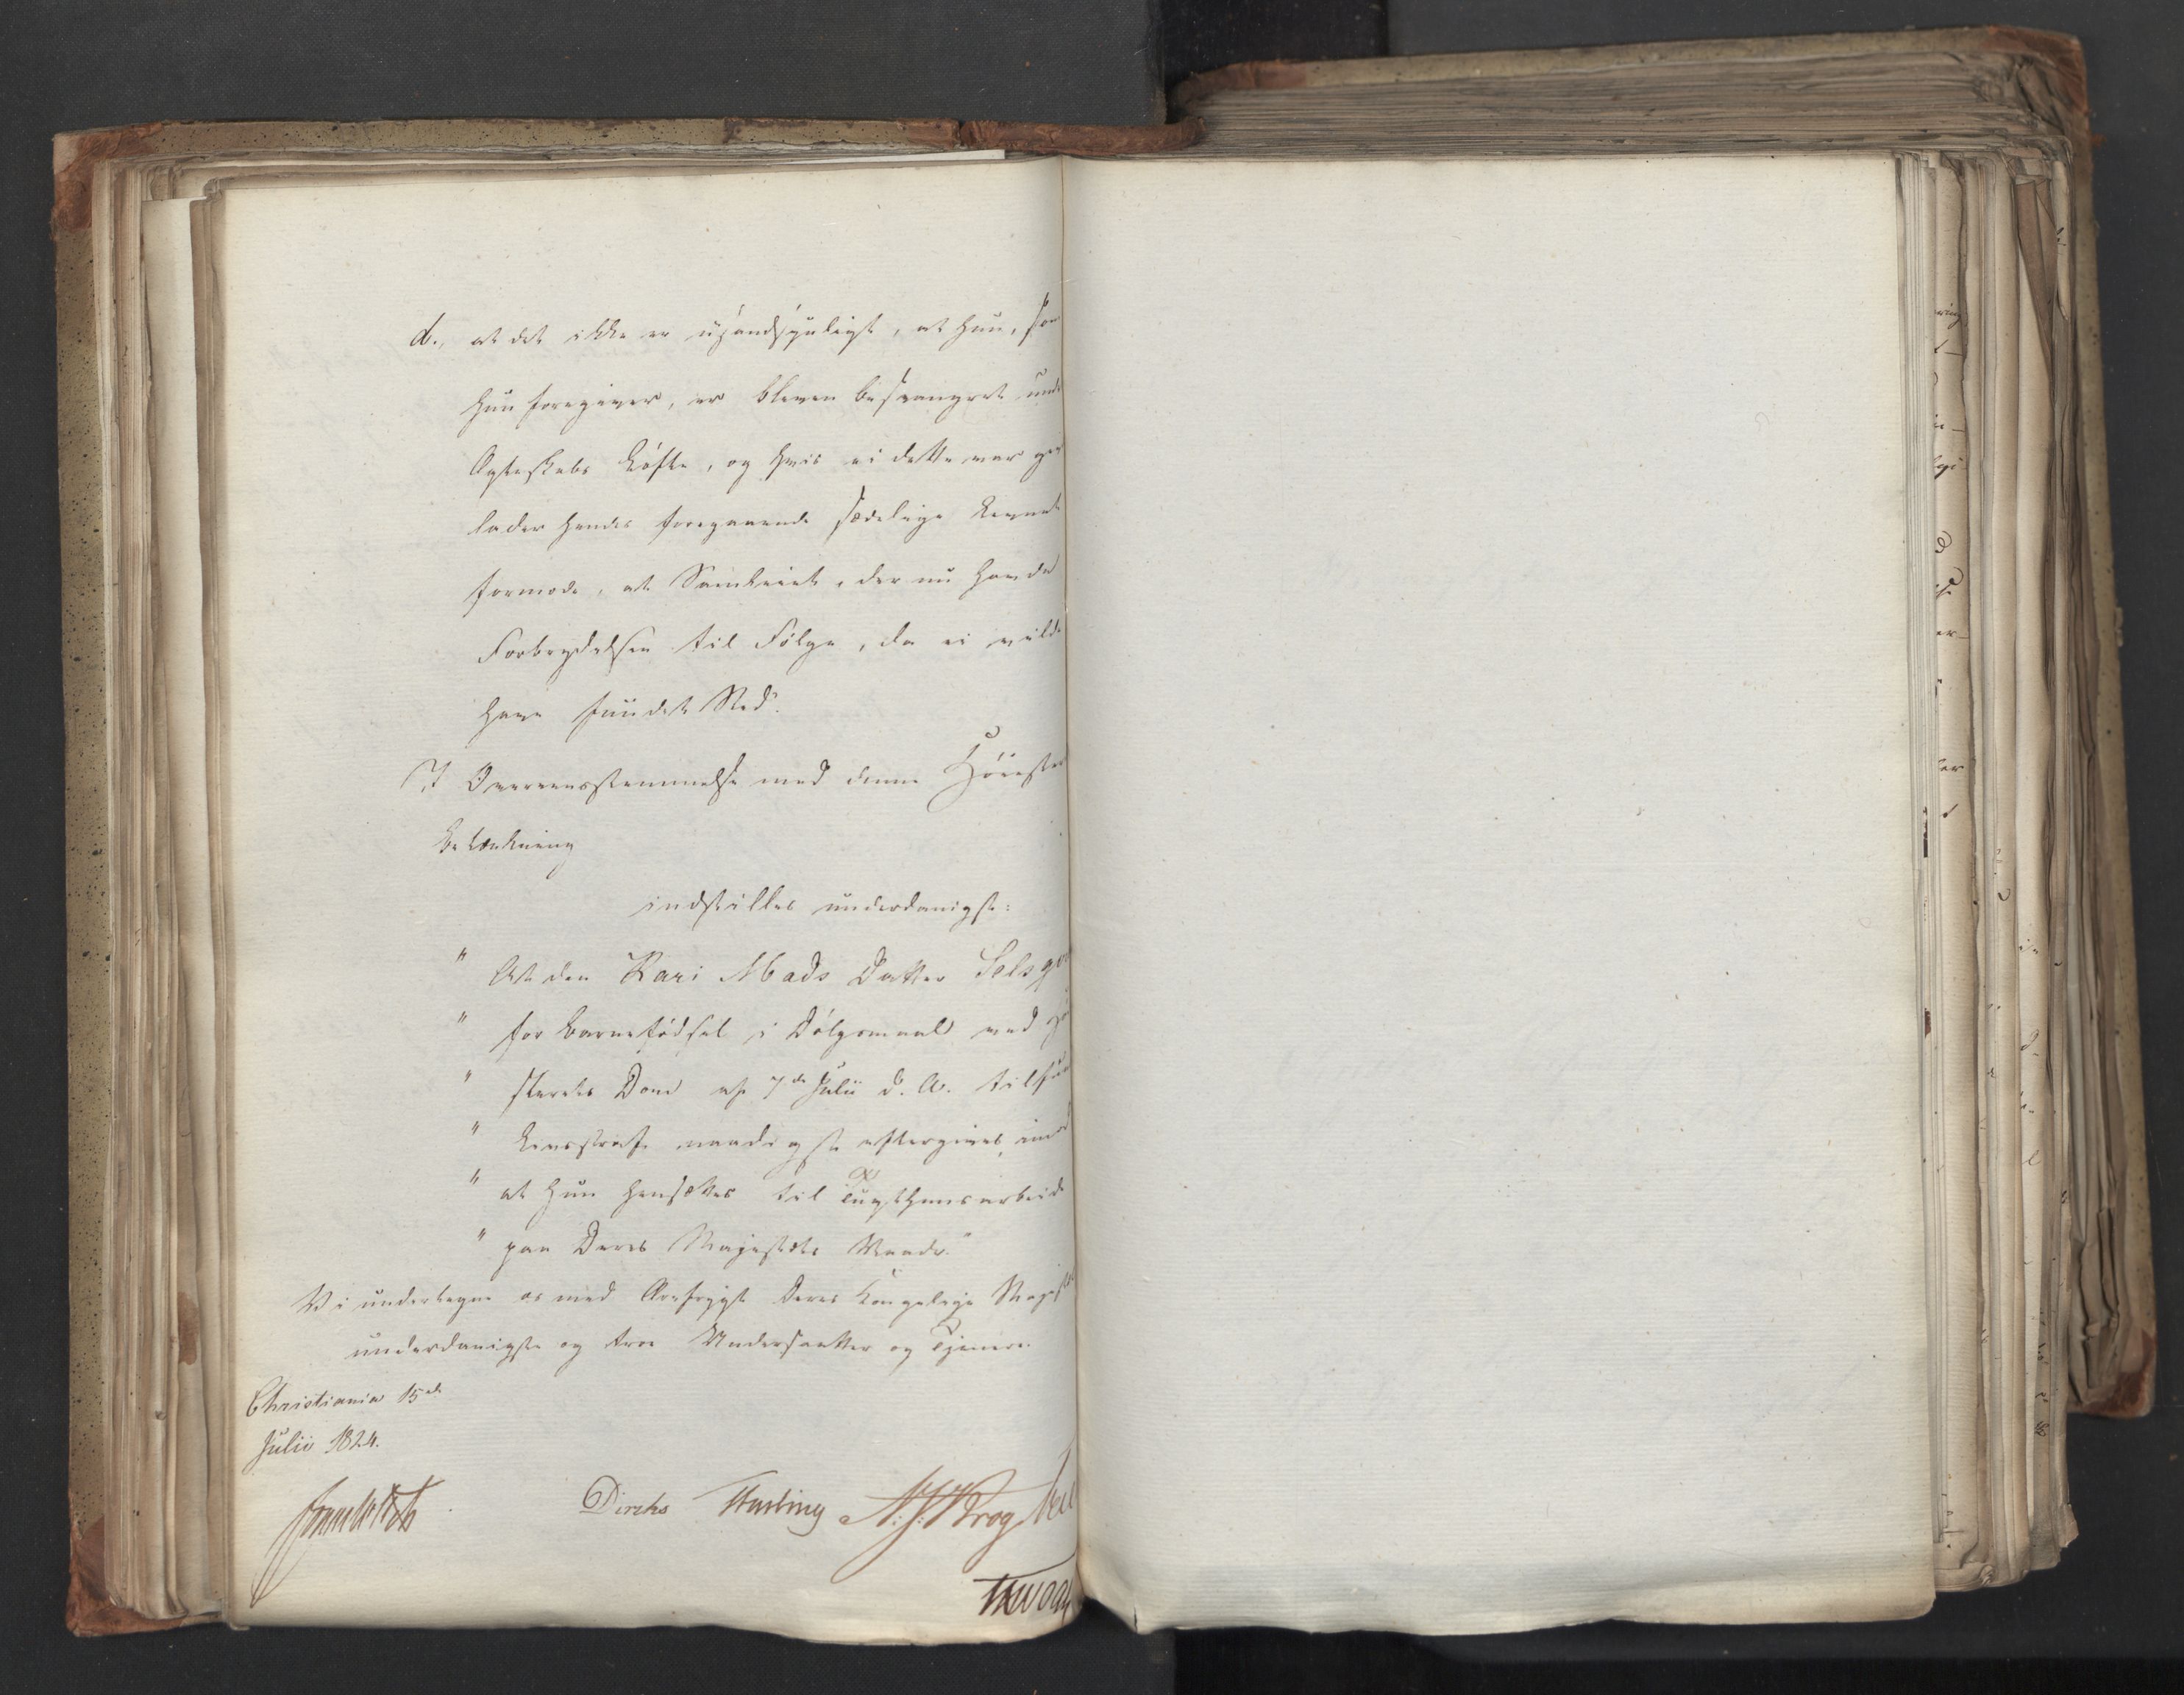 d., at det ikke er usandsynligt, at hun, som
hun foregiver, er bleven besvangret unde
Ægteskabs Løfte, og hvis ei dette var givet
lader hendes foregaaende sædelige Levnet
formode, at Samleiet, der nu havde
Forbrydelsen til Følge, da ei vilde
have fundet Sted.
I Overeensstemmelse med denne Høieste
Betænkning
indstilles underdanigst:
" At den Kari Mads Datter Sels
" for Barnefødsel i Dølgsmaal ved Høi
" sterets Dom af 7de Julii d. A. tilfun
" Livsstraf naadigst eftergives, imod
" at hun hensættes til Tugthuusarbeide
" paa Deres Majestæts Naade."
Vi undertegne os med Ærefrygt Deres Kongelige Majestæts
underdanigste og troe Undersaatter og Tjenere.
Christiania 15de
Julii 1824.
Diriks N: J: Krog